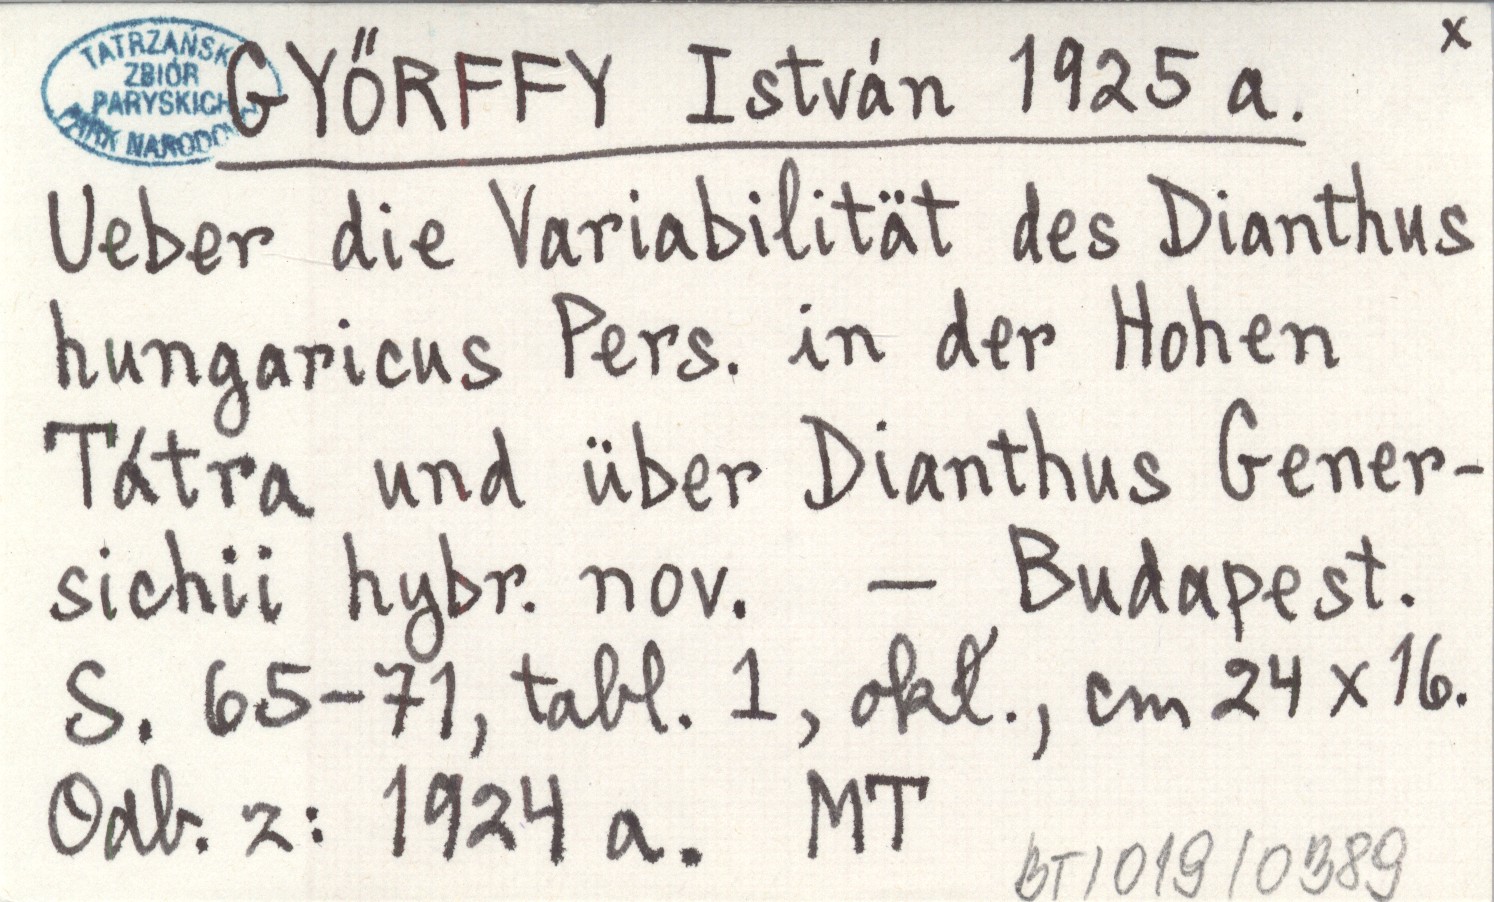 x
TATRZAŃSKI
ZBIÓR
PARYSKICH
PARK NARODOWY
GYŐRFFY István 1925 a.
Ueber die Variabilität des Dianthus
hungaricus Pers. in der Hohen
Tátra und über Dianthus Gener-
sichii hybr. nov. — Budapest.
S. 65-71, tabl. 1, okł., cm 24 x 16.
Odb. z: 1924 a. MT
BT/019/0389